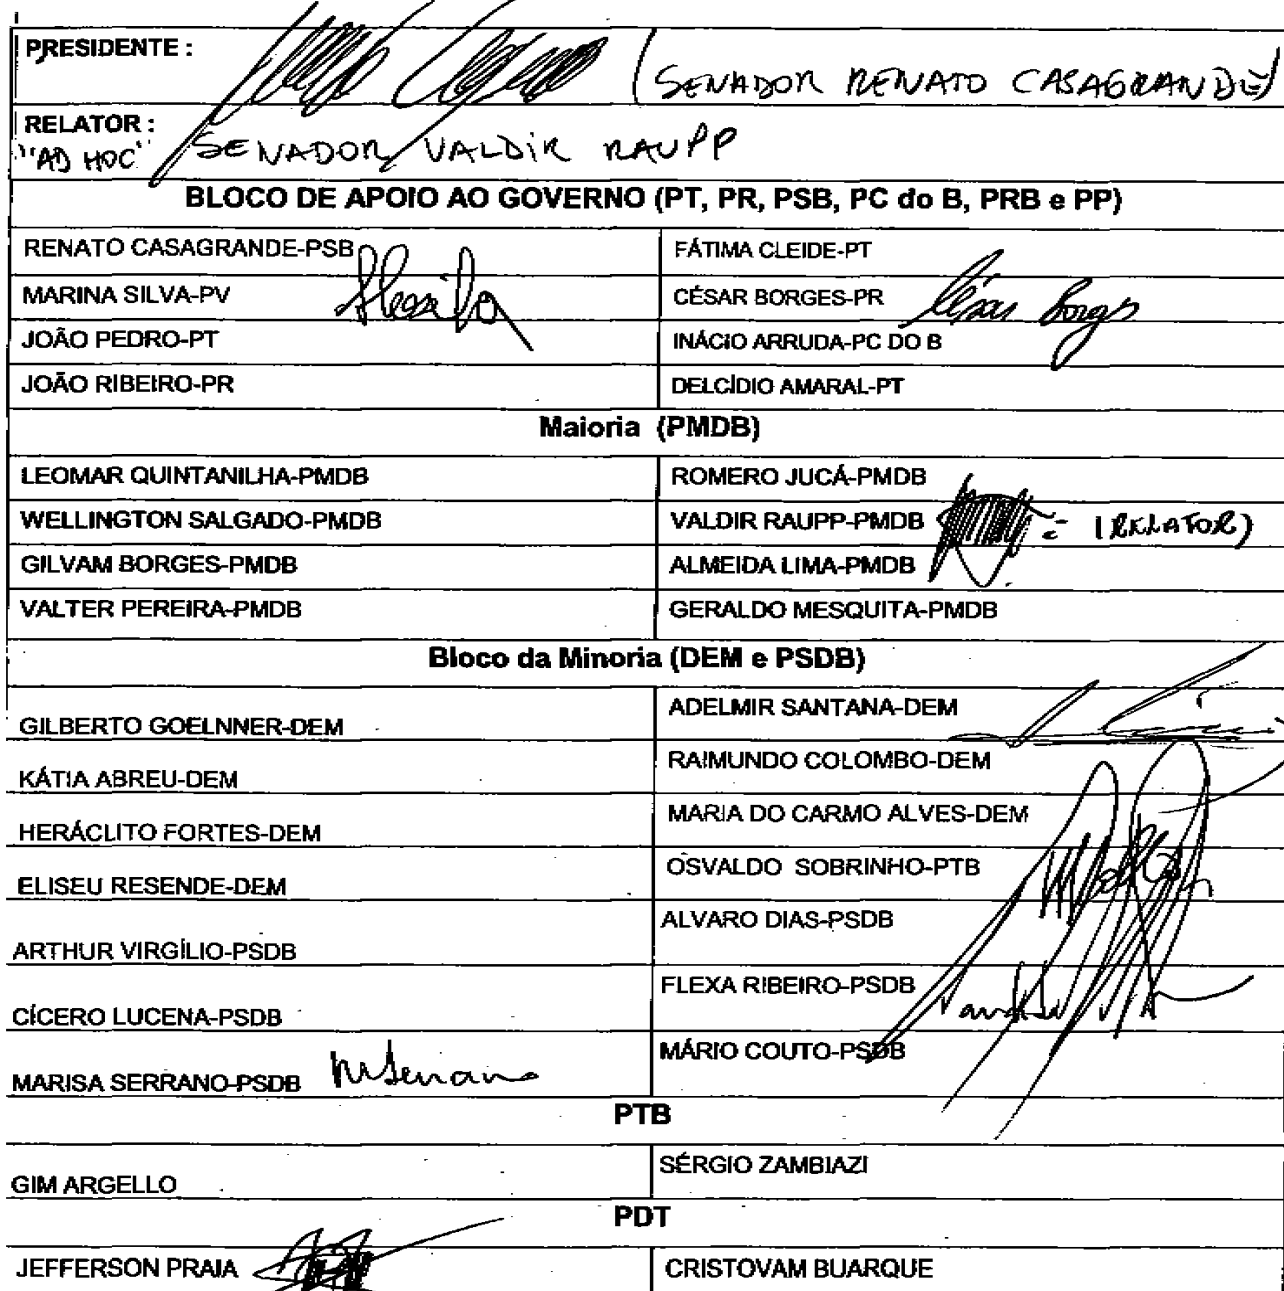 PRESIDENTE : (SENADOR RENATO CASAGRANDE)
RELATOR : 
"AD HOC" SENADOR VALDIR RAUPP
BLOCO DE APOIO AO GOVERNO (PT, PR, PSB, PC do B, PRB e PP)
RENATO CASAGRANDE-PSB FÁTIMA CLEIDE-PT
MARINA SILVA-PV CÉSAR BORGES-PR César Borges
JOÃO PEDRO-PT INÁCIO ARRUDA-PC DO B
JOÃO RIBEIRO-PR DELCÍDIO AMARAL-PT
Maioria (PMDB)
LEOMAR QUINTANILHA-PMDB ROMERO JUCÁ-PMDB
WELLINGTON SALGADO-PMDB VALDIR RAUPP-PMDB (RELATOR)
GILVAM BORGES-PMDB ALMEIDA LIMA-PMDB
VALTER PEREIRA-PMDB GERALDO MESQUITA-PMDB
Bloco da Minoria (DEM e PSDB)
GILBERTO GOELNNER-DEM ADELMIR SANTANA-DEM
KÁTIA ABREU-DEM RAIMUNDO COLOMBO-DEM
HERÁCLITO FORTES-DEM MARIA DO CARMO ALVES-DEM
ELISEU RESENDE-DEM OSVALDO SOBRINHO-PTB
ARTHUR VIRGÍLIO-PSDB ALVARO DIAS-PSDB
CÍCERO LUCENA-PSDB FLEXA RIBEIRO-PSDB
MARISA SERRANO-PSDB MSerrano MÁRIO COUTO-PSDB
PTB
GIM ARGELLO SÉRGIO ZAMBIAZI
PDT
JEFFERSON PRAIA CRISTOVAM BUARQUE